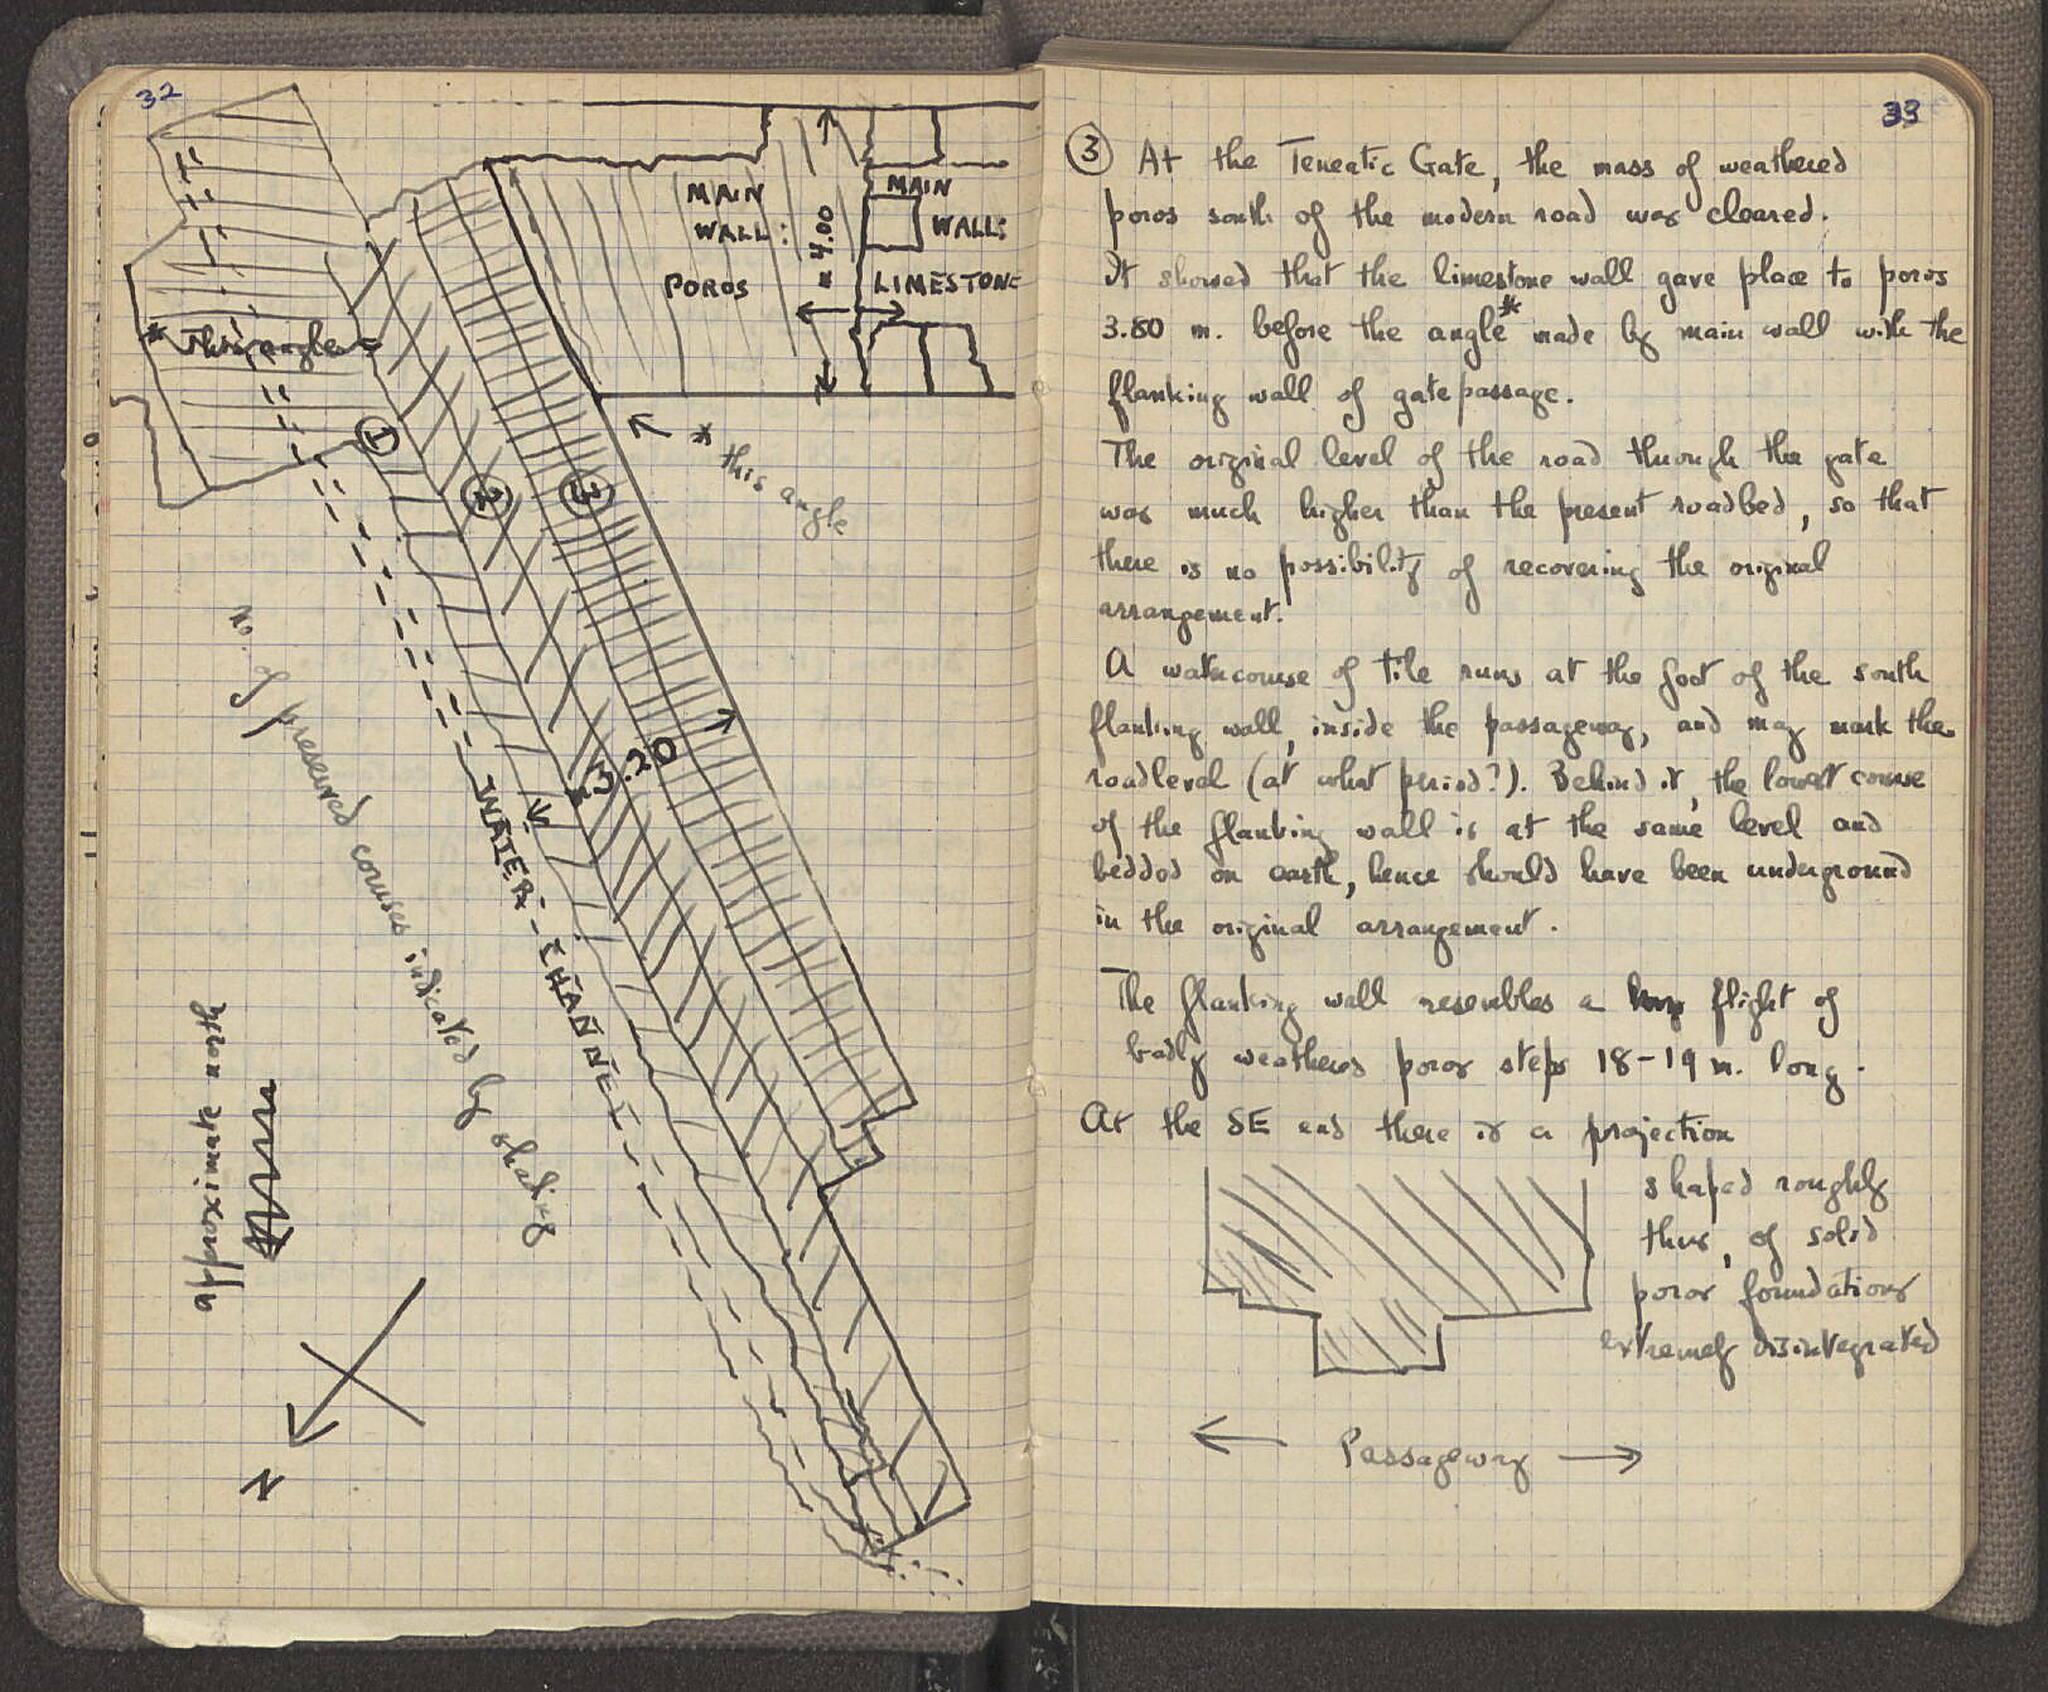 32
MAIN
WALL:
POROS
≈ 4.00
MAIN
WALL:
LIMESTONE
* this angle
1
2
3
* this angle
≈ 3.20
WATER-CHANNEL
No. of preserved courses indicated by shading
approximate north
N
33
③ At the Teneatic Gate, the mass of weathered
poros south of the modern road was cleared.
It showed that the limestone wall gave place to poros
3.80 m. before the angle* made by main wall with the
flanking wall of gate passage.
The original level of the road through the gate
was much higher than the present roadbed, so that
there is no possibility of recovering the original
arrangement.
A watercourse of tile runs at the foot of the south
flanking wall, inside the passageway, and may mark the
roadlevel (at what period?). Behind it, the lowest course
of the flanking wall is at the same level and
bedded on earth, hence should have been underground
in the original arrangement.
The flanking wall resembles a flight of
badly weathered poros steps 18-19 m. long.
At the SE end there is a projection
shaped roughly
thus, of solid
poros foundations
extremely disintegrated
← Passageway →